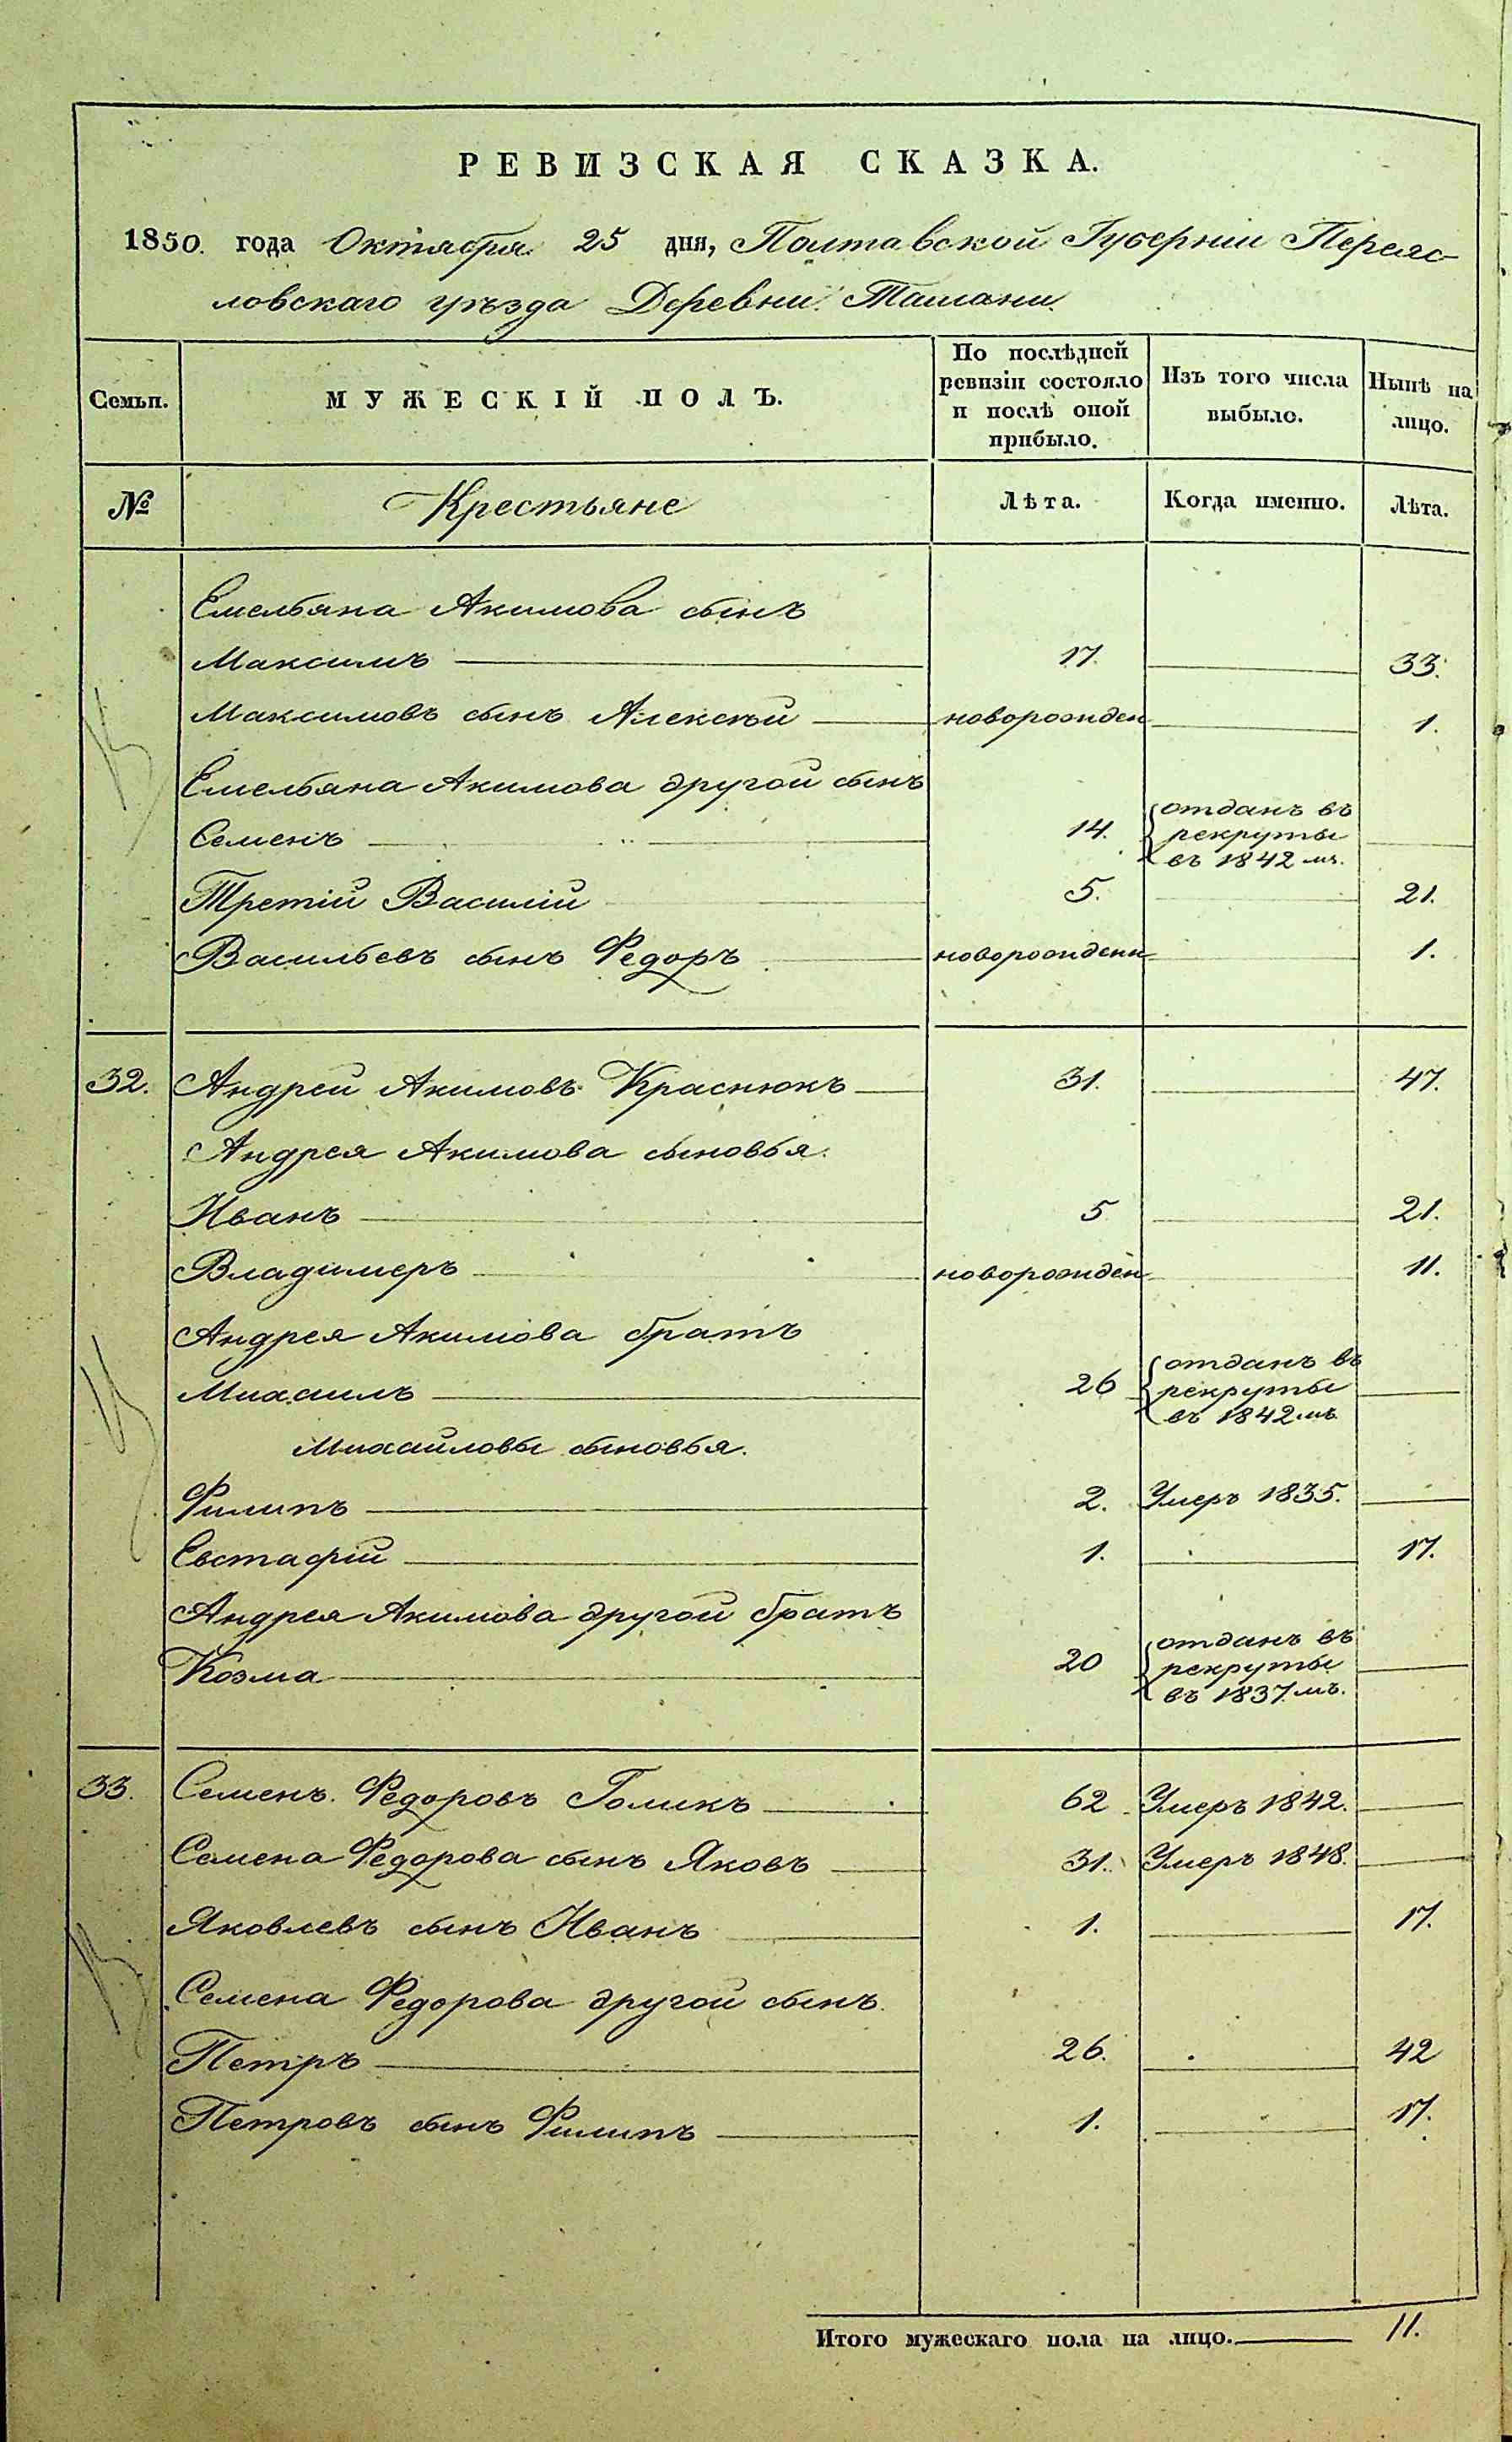 РЕВИЗСКАЯ СКАЗКА.
1850. года Октября 25 дня, Полтавской Губерніи Переяс-
ловскаго уѣзда Деревни Ташани.
Семьи.
МУЖЕСКІЙ ПОЛЪ.
По послѣдней
ревизіи состояло
и послѣ оной
прибыло.
Изъ того числа
выбыло.
Нынѣ на
лицо.
№ Крестьяне Лѣта. Когда именно. Лѣта.
Емельяна Акимова сынъ
Максимъ 17. 33.
Максимовъ сынъ Алексѣй новорожден 1.
Емельяна Акимова другой сынъ
Семенъ 14. отданъ въ
рекруты
въ 1842 мъ.
Третій Василій 5. 21.
Васильевъ сынъ Федоръ новорожденн 1.
32. Андрей Акимовъ Краснюкъ 31. 47.
Андрея Акимова сыновья.
Иванъ 5 21.
Владимеръ новорожден 11.
Андрея Акимова братъ
Михаилъ 26 отданъ въ
рекруты
въ 1842 мъ
Михайловы сыновья.
Филипъ 2. Умеръ 1835.
Евстафій 1. 17.
Андрея Акимова другой братъ
Козма 20 отданъ въ
рекруты
въ 1837 мъ.
33. Семенъ Федоровъ Голикъ 62 Умеръ 1842.
Семена Федорова сынъ Яковъ 31. Умеръ 1848.
Яковлевъ сынъ Иванъ 1. 17.
Семена Федорова другой сынъ
Петръ 26. 42
Петровъ сынъ Филипъ 1. 17.
Итого мужескаго пола на лицо. 11.